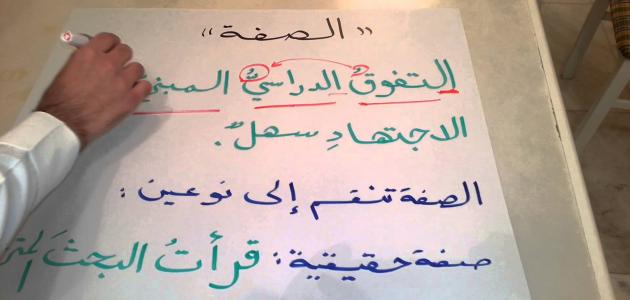 "الصفة"
التفوقُ الدراسيُّ المبني
الاجتهادِ سهلٌ.
الصفة تنقسم إلى نوعين :
صفة حقيقية: قرأتُ البحثَ